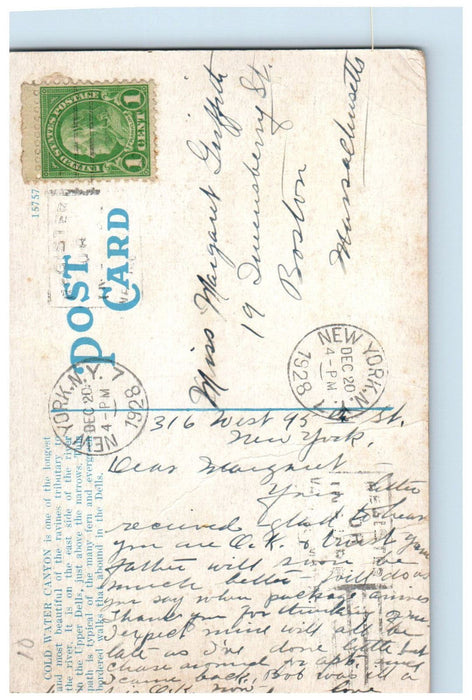 UNITED STATES POSTAGE
1 CENT 1
15757
POST
CARD
Miss Margaret Griffith
19 Queensberry St.
Boston
Massachusetts
NEW YORK, N.Y. 7
DEC 20
4-PM
1928
NEW YORK, N.
DEC 20
4-PM
1928
COLD WATER CANYON is one of the longest
and most beautiful of the ravines tributary t
the river. It is on the east side of the river
to the Upper Dells, just above the narrows. Th
path is typical of the many fern and evergr
bordered walks that abound in the Dells.
316 West 95 St.
New York.
Dear Margaret
Your letter
received glad to hear
you are O.K. & trust your
father will soon be
much better - will do as
you say when package arrives
thank you for thinking
expect mind will all be
late as I've done
chase around
came back, Bob was ill a
O.K. now
10